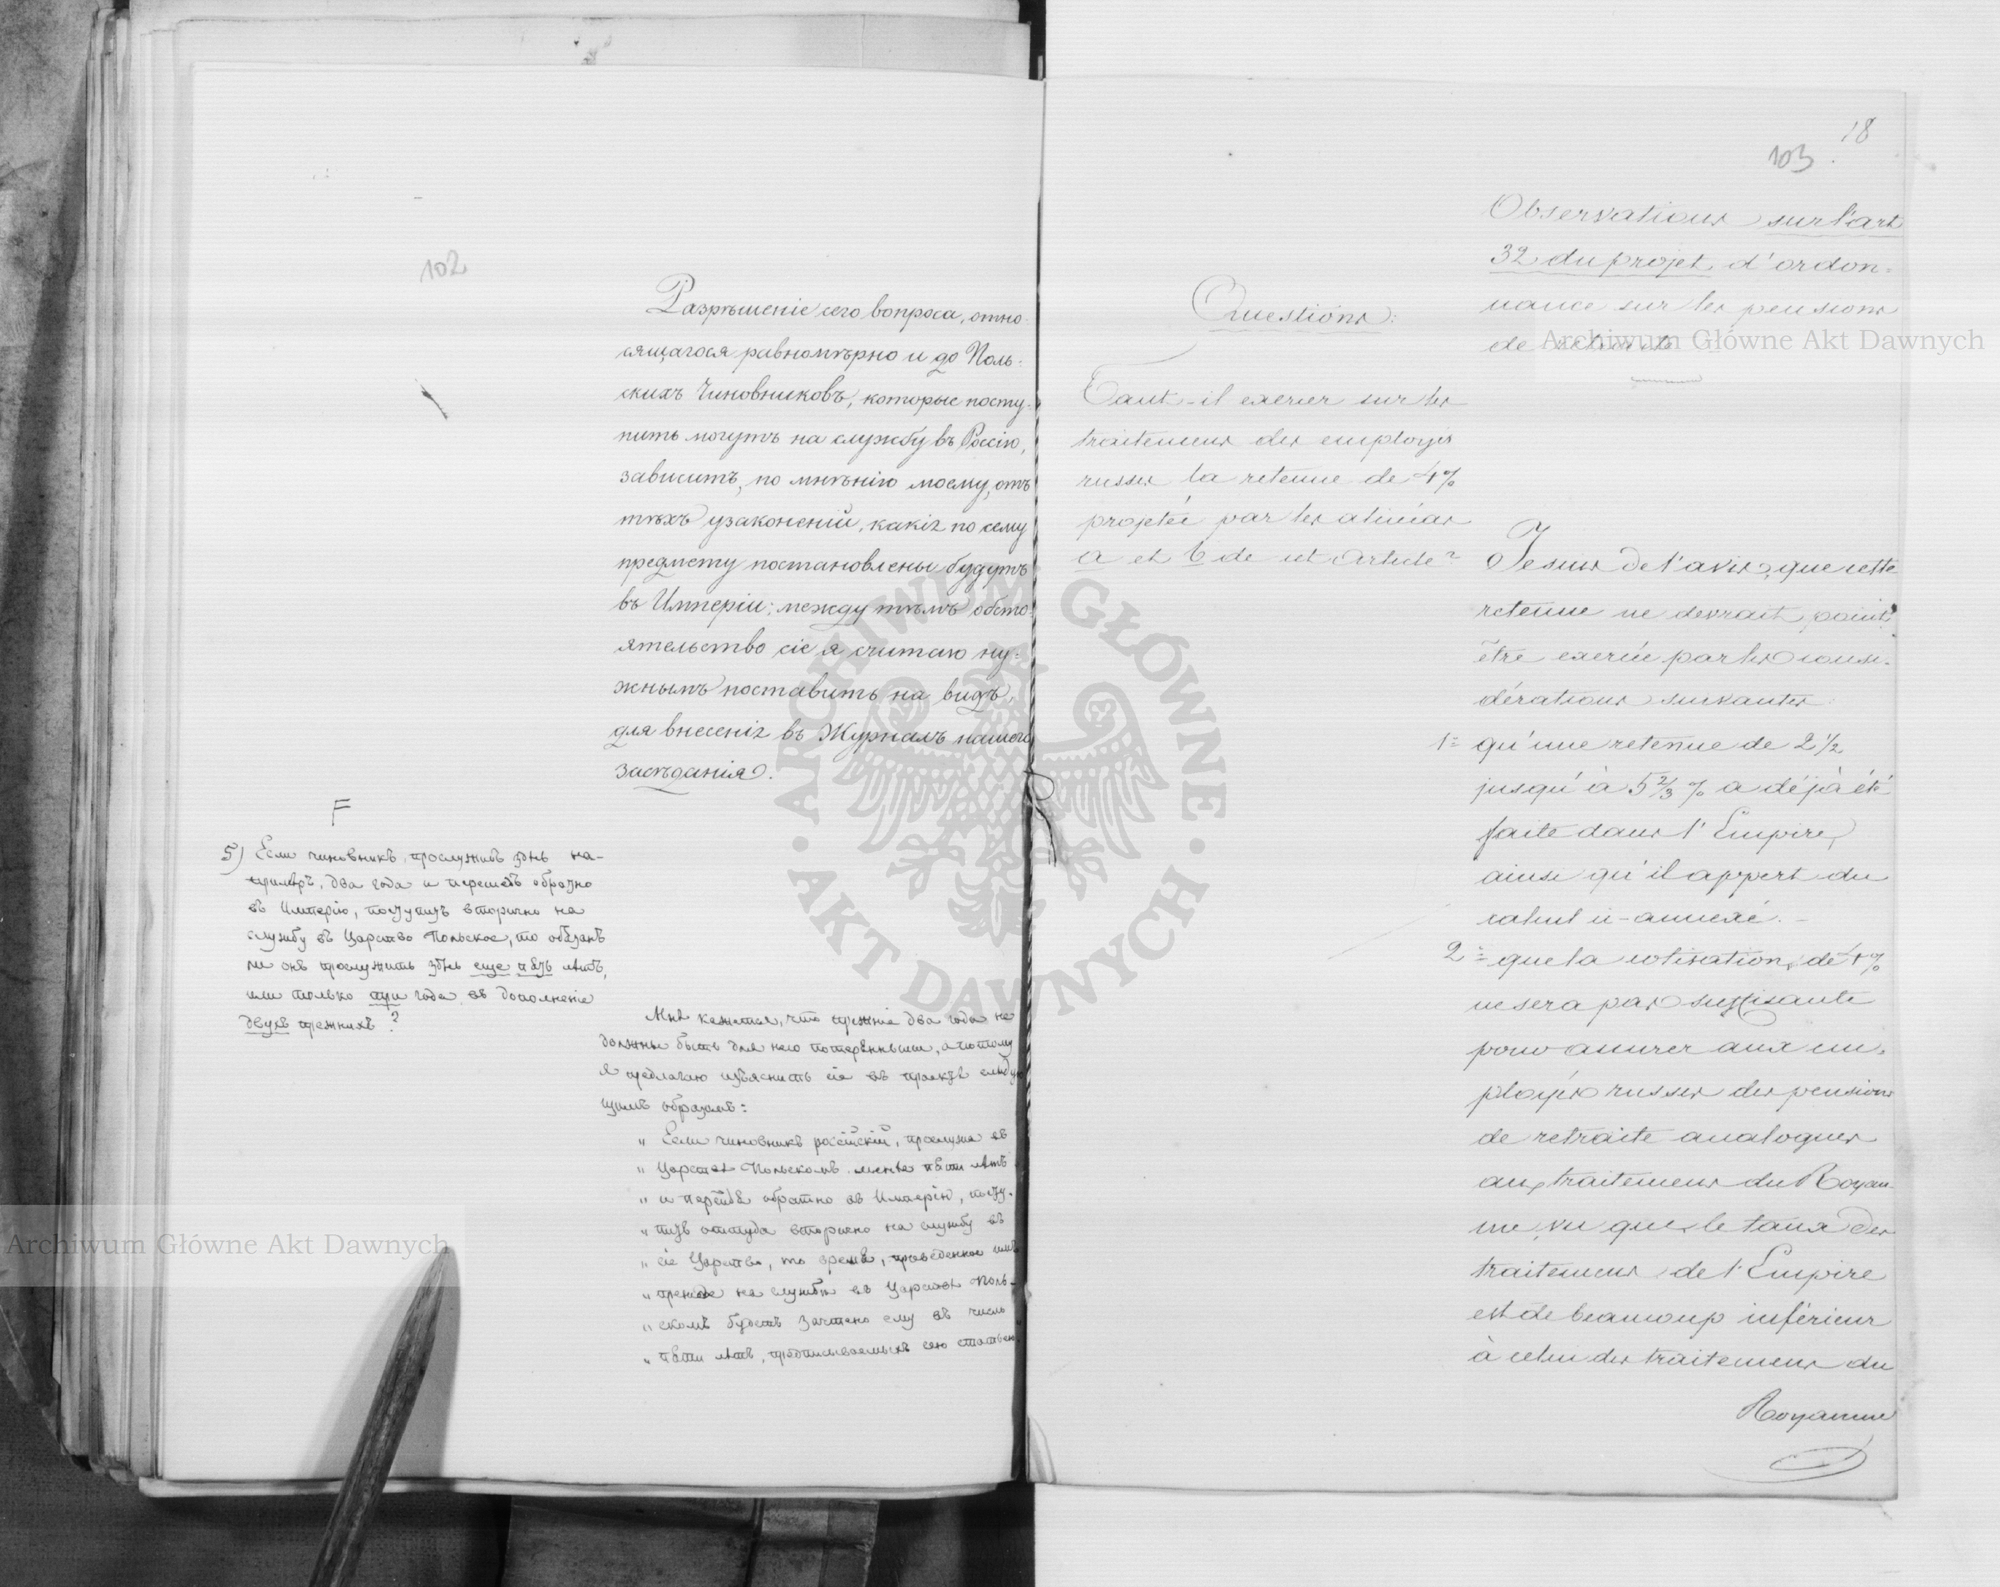 102
Разрѣшеніе сего вопроса, отно-
сящагося равномѣрно и до Поль-
скихъ Чиновниковъ, которые посту-
пить могутъ на службу въ Россію,
зависитъ, по мнѣнію моему, отъ
тѣхъ узаконеній, какія по сему
предмету постановлены будутъ
въ Имперіи; между тѣмъ обсто-
ятельство сіе я считаю ну-
жнымъ поставить на видъ,
для внесенія въ Журналъ нашего
засѣданія.
F
5) Если чиновникъ, прослуживъ здѣсь на-
примѣръ, два года и перешедъ обратно
въ Имперію, поступитъ вторично на
службу въ Царство Польское, то обязанъ
ли онъ прослужить здѣсь еще пять лѣтъ,
или только три года въ дополненіе
двухъ прежнихъ?
Мнѣ кажется, что прежніе два года не
должны быть для него потерянными, а потому
я предлагаю изъяснить сіе въ проектѣ слѣдую
щимъ образомъ:
" Если чиновникъ россійскій, прослужа въ
" Царствѣ Польскомъ менѣе пяти лѣтъ
" и перейдя обратно въ Имперію, посту-
" питъ оттуда вторично на службу въ
" сіе Царство, то время, проведенное имъ
" прежде на службѣ въ Царствѣ Поль-
" скомъ будетъ зачтено ему въ число
" пяти лѣтъ, предписываемыхъ сею статьею"
18
103
Observations sur l'art
32 du projet d'ordon-
nance sur les pensions
de retraite
Questions:
Faut-il exercer sur les
traitemens des employés
russes la retenue de 4%
projetée par les alinéas
a et b de cet Article?
Je suis de l'avis, que cette
retenue ne devrait point
être exercée par les consi-
dérations suivantes:
1° qu'une retenue de 2 1/2
jusqu'à 5 2/3 % a déjà été
faite dans l'Empire,
ainsi qu'il appert du
calcul ci-annexé. -
2° que la cotisation de 4%
ne sera pas suffisante
pour assurer aux em-
ployés russes des pensions
de retraite analogues
aux traitemens du Royau-
me, vu que le taux des
traitemens de l'Empire
est de beaucoup inférieur
à celui des traitemens du
Royaume
Archiwum Główne Akt Dawnych
Archiwum Główne Akt Dawnych
ARCHIWUM GŁÓWNE · AKT DAWNYCH ·